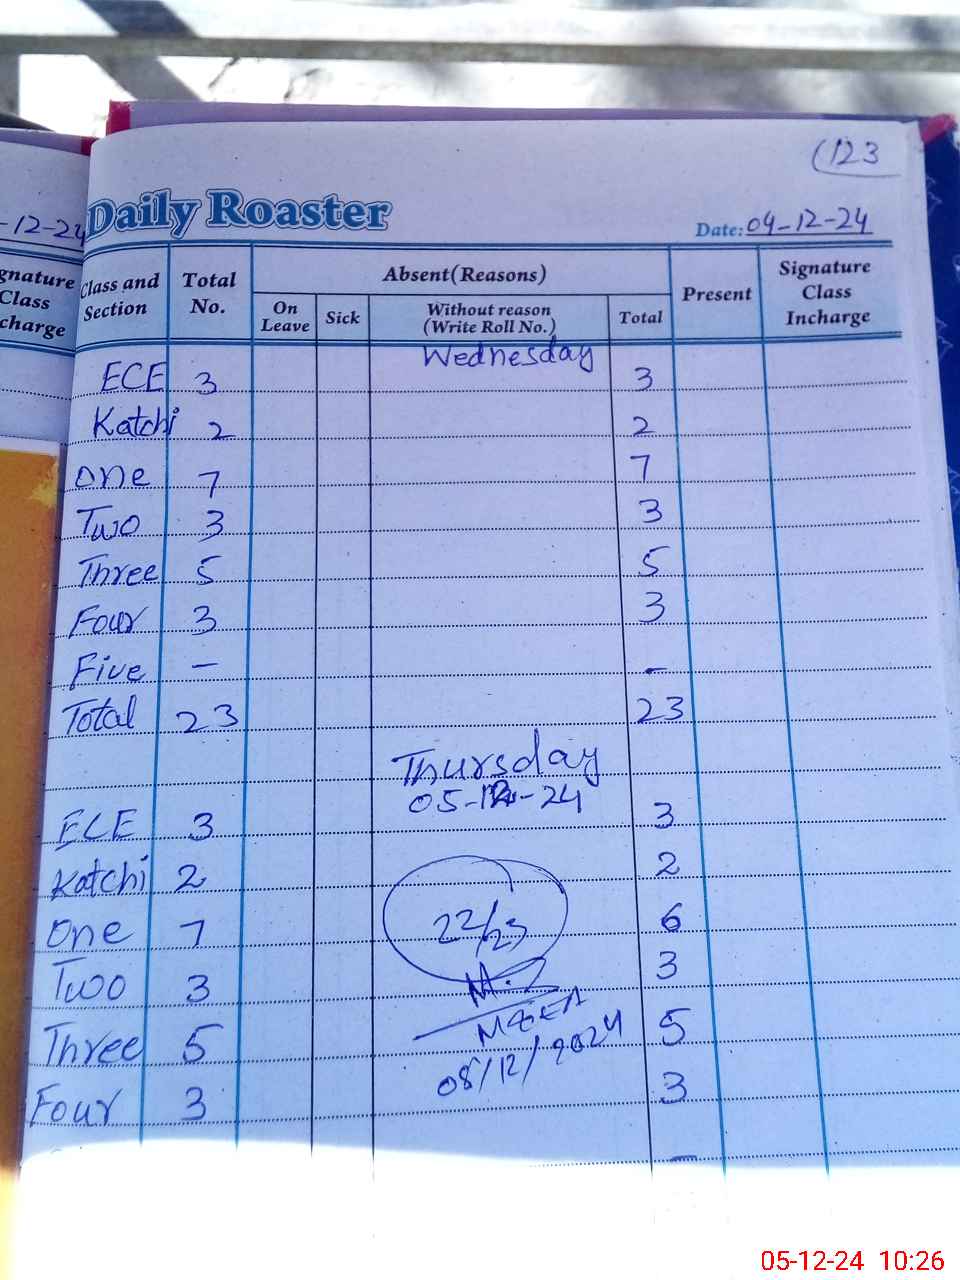 (123
Daily Roaster
-12-24
Date: 04-12-24
gnature
Class
charge
Class and Section
Total No.
Absent(Reasons)
On Leave
Sick
Without reason (Write Roll No.)
Total
Present
Signature Class Incharge
Wednesday
ECE 3 3
Katchi 2 2
One 7 7
Two 3 3
Three 5 5
Four 3 3
Five - -
Total 23 23
Thursday
05-12-24
ECE 3 3
Katchi 2 2
One 7 6
22/23
Two 3 3
Three 5 5
08/12/2024
Four 3 3
-
05-12-24 10:26